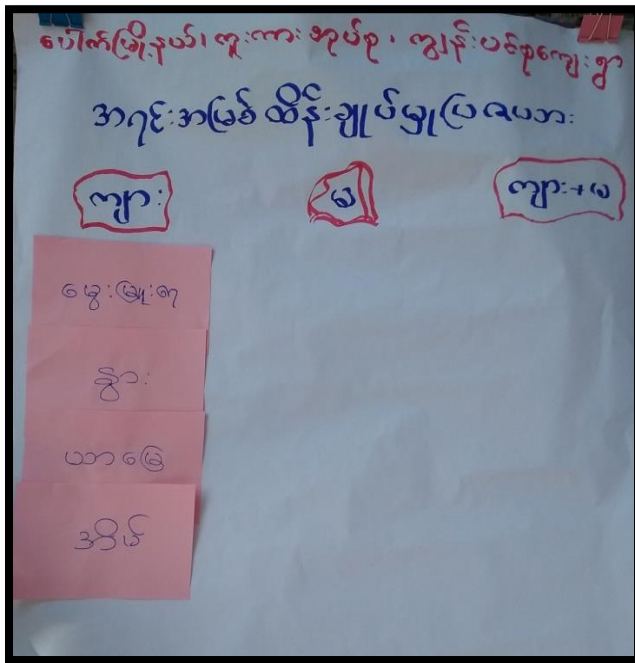 ပေါက်မြို့နယ်၊ ကူးကား အုပ်စု ၊ ကျွန်းပင်စုကျေးရွာ
အရင်းအမြစ်ထိန်းချုပ်မှုပြဇယား
ကျား
မ
ကျား+မ
မွေးမြူးရေ
နွား
ယာမြေ
အိမ်